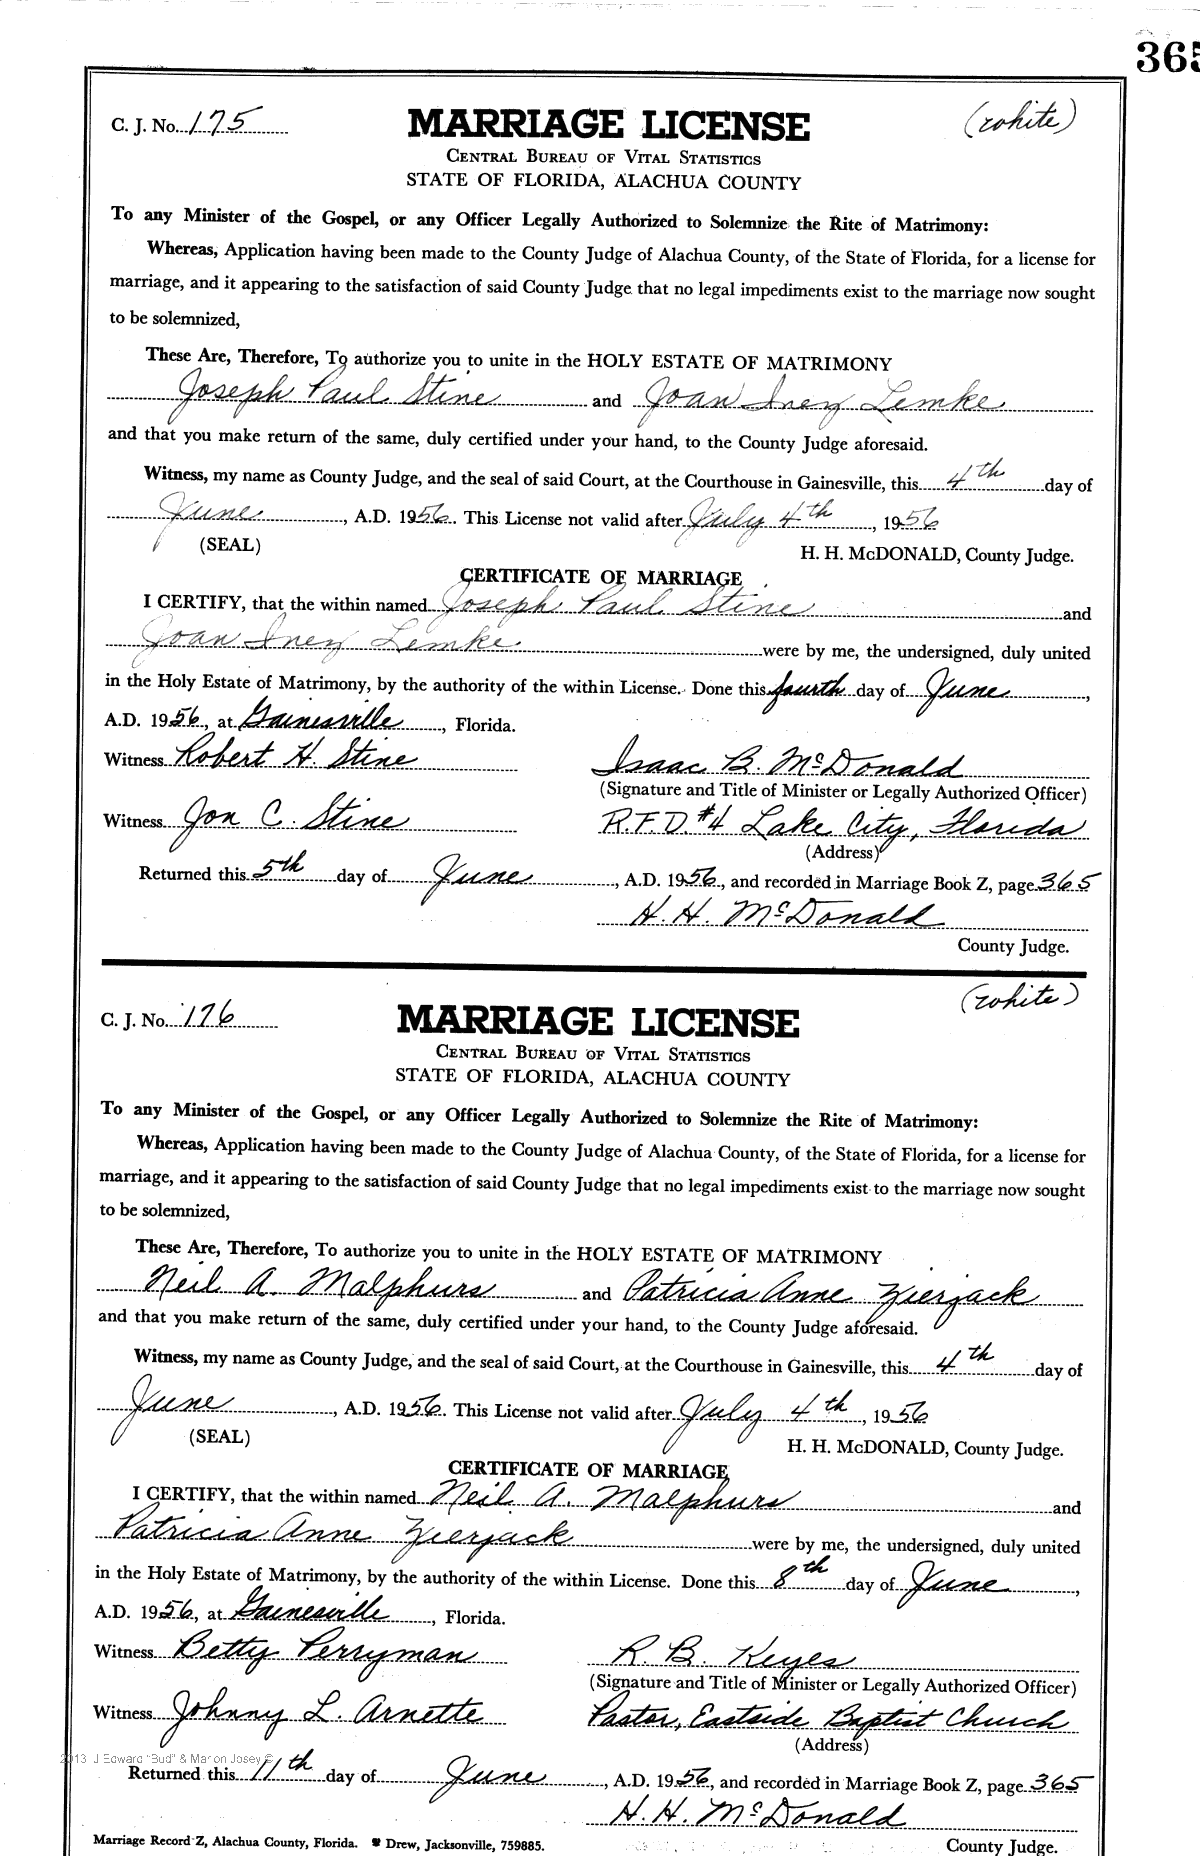 365
C. J. No. 175 MARRIAGE LICENSE (white)
CENTRAL BUREAU OF VITAL STATISTICS
STATE OF FLORIDA, ALACHUA COUNTY
To any Minister of the Gospel, or any Officer Legally Authorized to Solemnize the Rite of Matrimony:
Whereas, Application having been made to the County Judge of Alachua County, of the State of Florida, for a license for
marriage, and it appearing to the satisfaction of said County Judge that no legal impediments exist to the marriage now sought
to be solemnized,
These Are, Therefore, To authorize you to unite in the HOLY ESTATE OF MATRIMONY
Joseph Paul Stine and Joan Inez Lemke
and that you make return of the same, duly certified under your hand, to the County Judge aforesaid.
Witness, my name as County Judge, and the seal of said Court, at the Courthouse in Gainesville, this 4th day of
June, A.D. 1956. This License not valid after July 4th, 1956
(SEAL) H. H. McDONALD, County Judge.
CERTIFICATE OF MARRIAGE
I CERTIFY, that the within named Joseph Paul Stine and
Joan Inez Lemke were by me, the undersigned, duly united
in the Holy Estate of Matrimony, by the authority of the within License. Done this fourth day of June,
A.D. 1956, at Gainesville, Florida.
Witness Robert H. Stine Isaac B. McDonald
(Signature and Title of Minister or Legally Authorized Officer)
Witness Jon C. Stine R.F.D. #4 Lake City, Florida
(Address)
Returned this 5th day of June, A.D. 1956, and recorded in Marriage Book Z, page 365
H. H. McDonald
County Judge.
C. J. No. 176 MARRIAGE LICENSE (white)
CENTRAL BUREAU OF VITAL STATISTICS
STATE OF FLORIDA, ALACHUA COUNTY
To any Minister of the Gospel, or any Officer Legally Authorized to Solemnize the Rite of Matrimony:
Whereas, Application having been made to the County Judge of Alachua County, of the State of Florida, for a license for
marriage, and it appearing to the satisfaction of said County Judge that no legal impediments exist to the marriage now sought
to be solemnized,
These Are, Therefore, To authorize you to unite in the HOLY ESTATE OF MATRIMONY
Neil A. Malphurs and Patricia Anne Zierjack
and that you make return of the same, duly certified under your hand, to the County Judge aforesaid.
Witness, my name as County Judge, and the seal of said Court, at the Courthouse in Gainesville, this 4th day of
June, A.D. 1956. This License not valid after July 4th, 1956
(SEAL) H. H. McDONALD, County Judge.
CERTIFICATE OF MARRIAGE
I CERTIFY, that the within named Neil A. Malphurs and
Patricia Anne Zierjack were by me, the undersigned, duly united
in the Holy Estate of Matrimony, by the authority of the within License. Done this 8th day of June,
A.D. 1956, at Gainesville, Florida.
Witness Betty Perryman R. B. Keyes
(Signature and Title of Minister or Legally Authorized Officer)
Witness Johnny L. Arnette Pastor, Eastside Baptist Church
(Address)
2013 J Edward "Bud" & Marion Josey ©
Returned this 11th day of June, A.D. 1956, and recorded in Marriage Book Z, page 365
H. H. McDonald
Marriage Record Z, Alachua County, Florida. Drew, Jacksonville, 759885. County Judge.